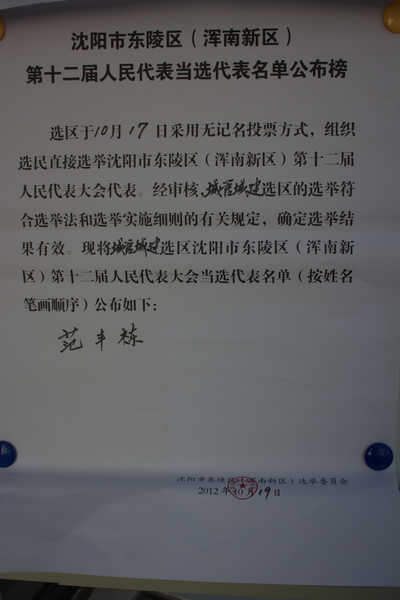 沈阳市东陵区（浑南新区）
第十二届人民代表当选代表名单公布榜
选区于10月17日采用无记名投票方式，组织
选民直接选举沈阳市东陵区（浑南新区）第十二届
人民代表大会代表。经审核，城管城建选区的选举符
合选举法和选举实施细则的有关规定，确定选举结
果有效。现将城管城建选区沈阳市东陵区（浑南新
区）第十二届人民代表大会当选代表名单（按姓名
笔画顺序）公布如下：
范丰栋
沈阳市东陵区（浑南新区）选举委员会
2012年10月19日